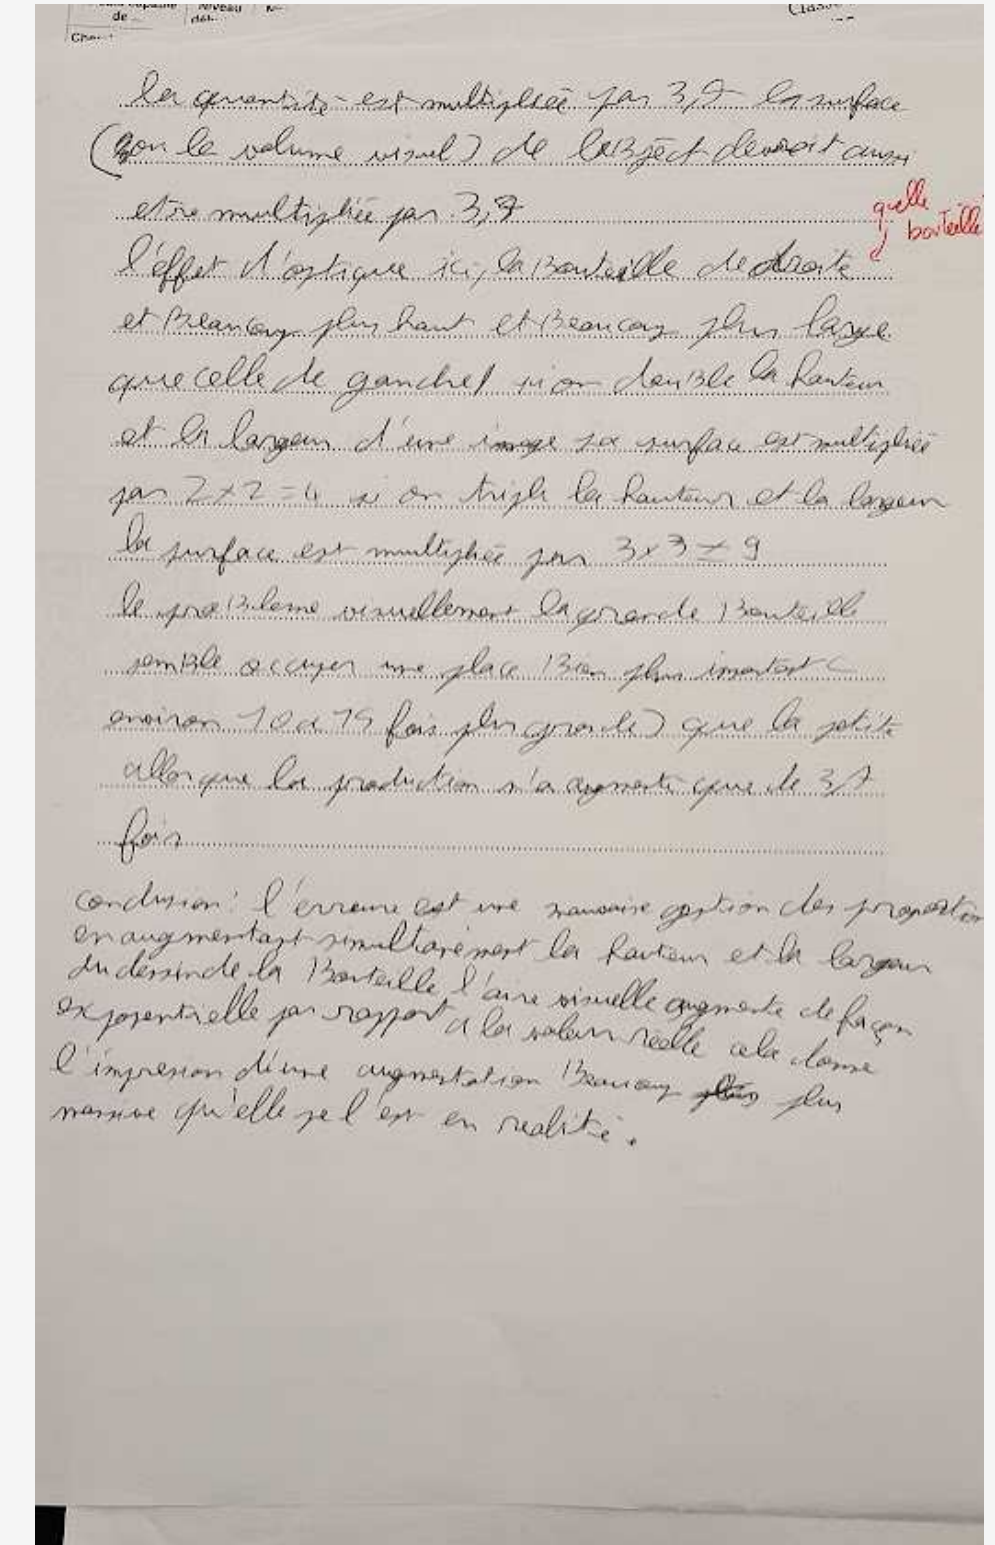 de
niveau
la quantité est multipliée par 3,7 la surface
(son le volume visuel) de l'oBject devrait aussi
etre multipliée par 3,7
quelle
bouteille
l'effet d'optique ici, la Bouteille de droite
et Beaucoup plus haut et Beaucoup plus large
que celle de gauche si on douBle la hauteur
et la largeur d'une image sa surface est multipliée
par 2x2=4 si on triple la hauteur et la largeur
la surface est multipliée par 3x3=9
le proBleme visuellement la grande Bouteille
semBle occuper une place Bien plus important (
environ 10 a 15 fois plus grande) que la petite
allor que la production n'a augmenté que de 3,7
fois
conclusion : l'erreure est une mauvaise gestion des proportion
en augmentant simultanément la hauteur et la largeur
du dessin de la Bouteille l'aire visuelle augmente de façon
exponentielle par rapport a la valeur réelle cela donne
l'impresion d'une augmentation Beaucoup plus
massive qu'elle ne l'est en realitie.